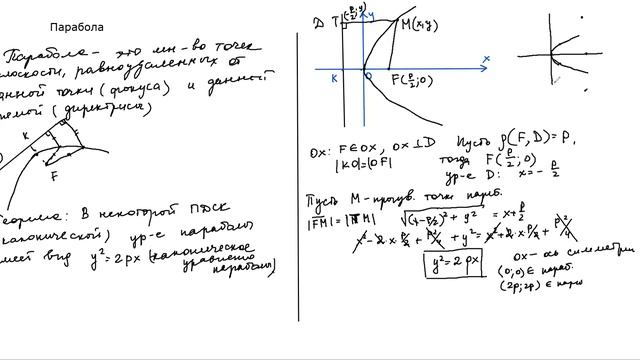 Парабола
Парабола - это мн-во точек
плоскости, равноудаленных от
данной точки (фокуса) и данной
прямой (директрисы)
K
F
Теорема: В некоторой ПДСК
(канонической) ур-е параболы
имеет вид y² = 2px (каноническое
уравнение
параболы)
D T (-p/2; y) y M(x,y)
x
K O F(p/2; 0)
Ox: F∈OX, OX⊥D Пусть ρ(F, D) = p,
|KO|=|OF| тогда F(p/2; 0)
ур-е D: x = -p/2
Пусть M - произв. точка параб.
|FM| = |TM| √((x-p/2)² + y²) = x + p/2
x² - 2·x·p/2 + p²/4 + y² = x² + 2·x·p/2 + p²/4
y² = 2px
OX - ось симметрии
(0;0) ∈ параб.
(2p; 2p) ∈ параб